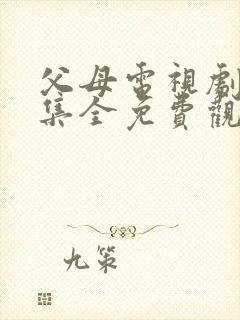 父母電視劇
集全免費觀
九策